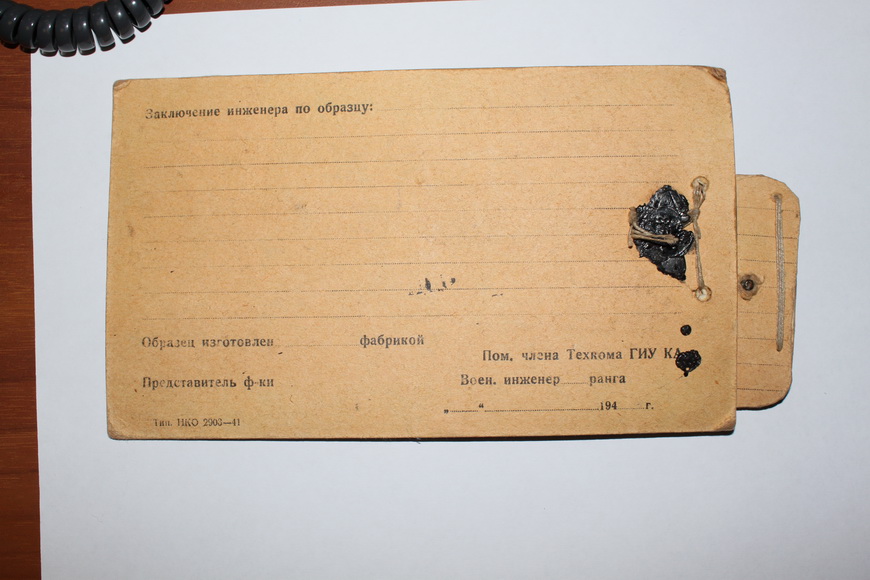 Заключение инженера по образцу:
Образец изготовлен фабрикой
Пом. члена Техкома ГИУ КА
Представитель ф-ки
Воен. инженер ранга
„ “ 194 г.
Тип. НКО 2903—41